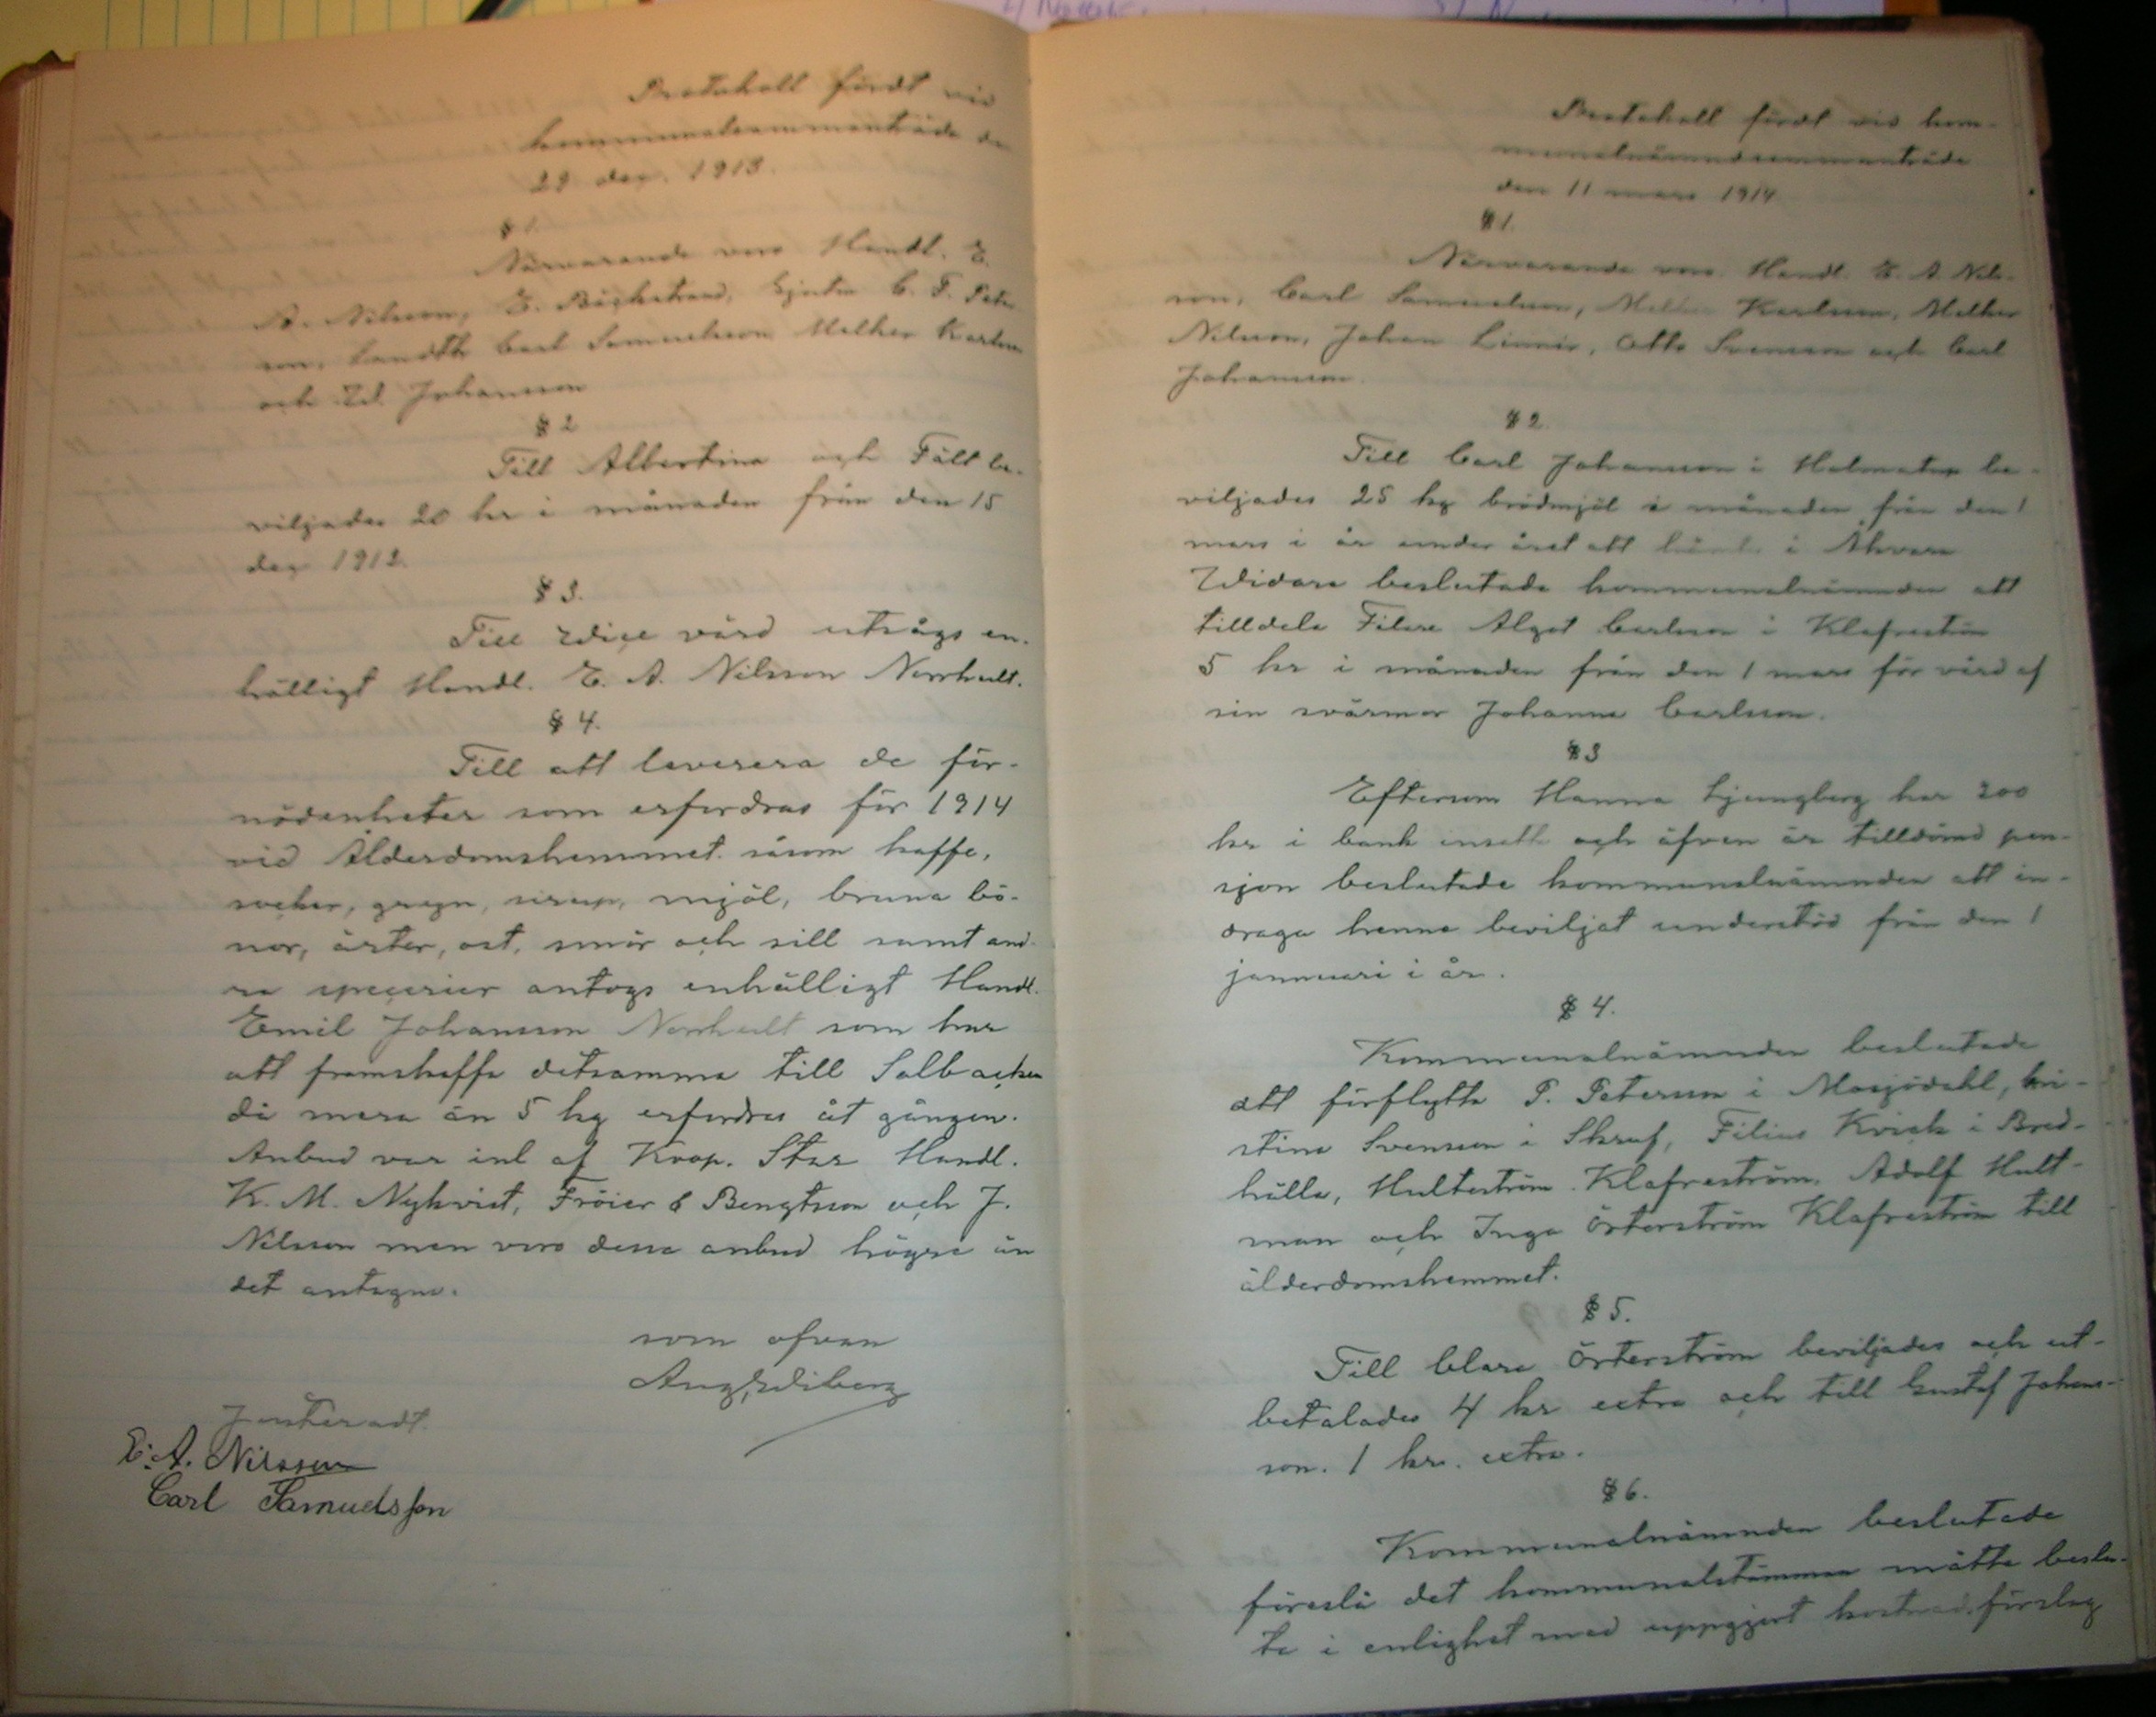 Protokoll fördt vid
kommunalsammanträde de
29 dec. 1913.
§ 1.
Närvarande voro Handl. E.
A. Nilsson, E. Bäckstrand, C. F. Peter
son, Landtb Carl Samuelsson Melker Karlson
och Johansson
§ 2
Till Albertina och Fält be-
viljades 20 kr i månaden från den 15
dec 1913.
§ 3.
Till Wice värd utsågs en-
hälligt Handl. E. A. Nilsson Norrhult.
§ 4.
Till att leverera de för-
nödenheter som erfordras för 1914
vid Ålderdomshemmet såsom kaffe,
socker, gryn, sirup, mjöl, bruna bö-
nor, ärter, ost, smör och sill samt and-
ra specerier antogs enhälligt Handl.
Emil Johansson Norrhult som har
att framskaffa detsamma till Solbacken
då mera än 5 kg erfordras åt gången.
Anbud var inl af Koop. Star Handl.
K. M. Nykvist, Fröier & Bengtsson och J.
Nilsson men voro dessa anbud högre än
det antagna.
som ofvan
Aug. Wiberg
Justeradt.
E. A. Nilsson
Carl Samuelsson
Protokoll fördt vid kom-
munalnämndsammanträde
den 11 mars 1914
§ 1.
Närvarande voro Handl. E. A. Nils-
son, Carl Samuelsson, Melker Karlsson, Melker
Nilsson, Johan Linnér, Otto Svensson och Carl
Johansson.
§ 2.
Till Carl Johansson i be-
viljades 25 kg brödmjöl i månaden från den 1
mars i år under året att hämta i
Widare beslutade kommunalnämnden att
tilldela Filare Algot Carlsson i Klafreström
5 kr i månaden från den 1 mars för vård af
sin svärmor Johanna Carlsson.
§ 3
Eftersom Hanna Ljungberg har 200
kr i bank insatt och äfven är tilldömd pen-
sjon beslutade kommunalnämnden att in-
draga henne beviljat understöd från den 1
jannuari i år.
§ 4.
Kommunalnämnden beslutade
att förflytta P. Peterson i Mosjödahl, kri-
stina Svensson i Skruf, Filius Kvick i Bred-
hälla, Hulteström Klafreström, Adolf Hult-
man och Inga Örterström Klafreström till
ålderdomshemmet.
§ 5.
Till Clara Örterström beviljades och ut-
betalades 4 kr extra och till Gustaf Johans-
son. 1 kr. extra.
§ 6.
Kommunalnämnden beslutade
föreslå det kommunalstämman måtte beslu-
ta i enlighet med uppgjort kostnadsförslag